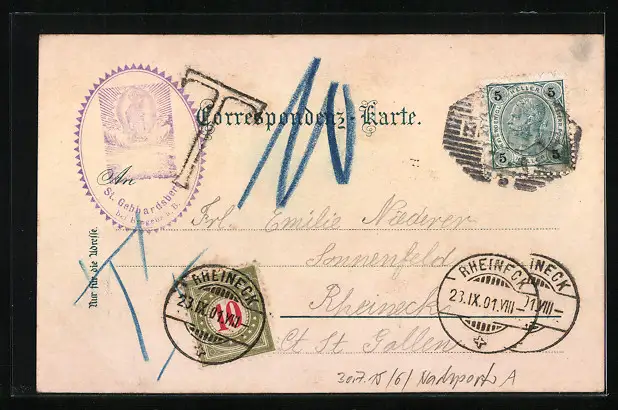 T
10
Correspondenz-Karte.
5 5
5 5
An
St. Gebhardsberg
bei Bregenz a. B.
Nur für die Adresse.
Frl. Emilie Niederer
Sonnenfeld
Rheineck
Ct St Gallen
RHEINECK
23.IX.01.VIII
10
RHEINECK
23.IX.01.VIII
INECK
01.VIII
T
A